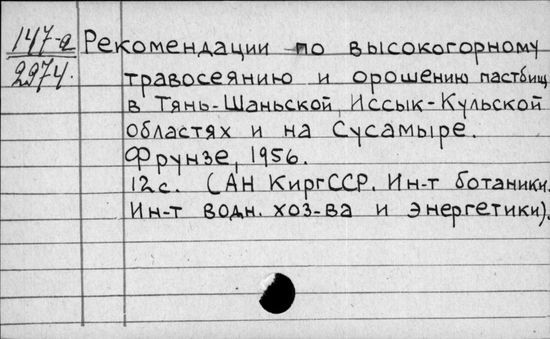 147-а
2974.
Рекомендации по высокогорному
травосеянию и орошению пастбищ
в Тянь-Шаньской, Иссык-Кульской
областях и на Сусамыре.
Фрунзе, 1956.
12с. (АН КиргССР. Ин-т ботаники.
Ин-т водн. хоз-ва и энергетики).